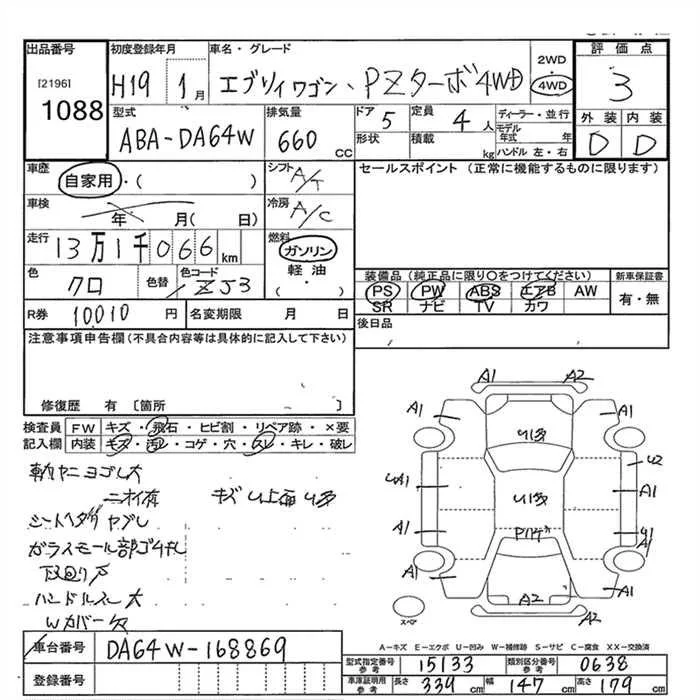 出品番号
[2196]
1088
初度登録年月
H19 1月
車名・グレード
エブリィワゴン、PZターボ4WD
2WD
4WD
評価点
3
外装 内装
D D
型式
ABA-DA64W
排気量
660 CC
ドア 5
形状
定員 4人
積載 kg
ディーラー・並行
モデル年式 年
ハンドル 左・右
車歴
自家用・( )
シフト A/T
車検
年 月( 日)
冷房 A/C
走行
13万1千066km
燃料
ガソリン
軽油
( ・ )
色
クロ
色替
色コード
ZJ3
R券 10010 円
名変期限 月 日
セールスポイント (正常に機能するものに限ります)
装備品(純正品に限り○をつけてください)
PS PW ABS エアB AW
SR ナビ TV カワ
新車保証書
有・無
後日品
注意事項申告欄(不具合内容等は具体的に記入して下さい)
修復歴 有〔箇所 〕
検査員 FW キズ・飛石・ヒビ割・リペア跡・×要
記入欄 内装 キズ・汚レ・コゲ・穴・スレ・キレ・破レ
ヨゴレ大
ニオイ有 キズ
ヤブレ
ガラスモール部
下回り
ハンドルスレ 大
Wカバー欠
A1 A2
A1 A1
A1 U2
A1
A1 A1
A1 A1
A2 A2
スペア
A-キズ E-エクボ U-凹み W-補修跡 S-サビ C-腐食 XX-交換済
車台番号 DA64W-168869
登録番号
型式指定番号参考 15133 類別区分番号参考 0638
車庫証明用参考 長さ 339cm 幅 147cm 高さ 179cm